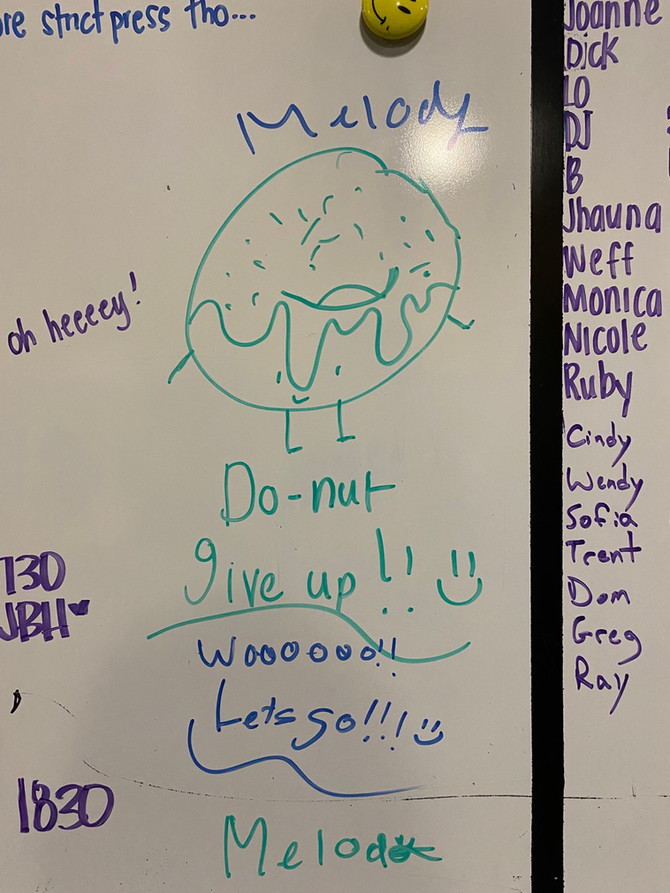 re strict press tho...
Melody
oh heeeey!
Do-nut
give up!!
730
JBH
Wooooooo!!
Lets go!!!
1830
Melod
Joanne
Dick
LO
DJ
B
Jhauna
Weff
Monica
Nicole
Ruby
Cindy
Wendy
Sofia
Trent
Dom
Greg
Ray